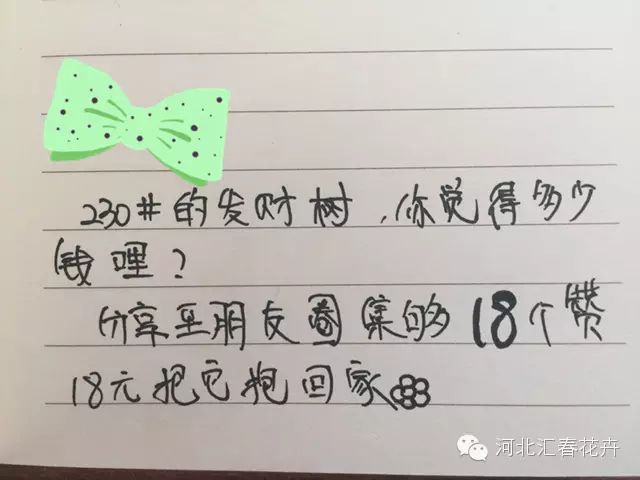 230#的发财树，你觉得多少
钱哩？
分享至朋友圈集够18个赞
18元把它抱回家
河北汇春花卉